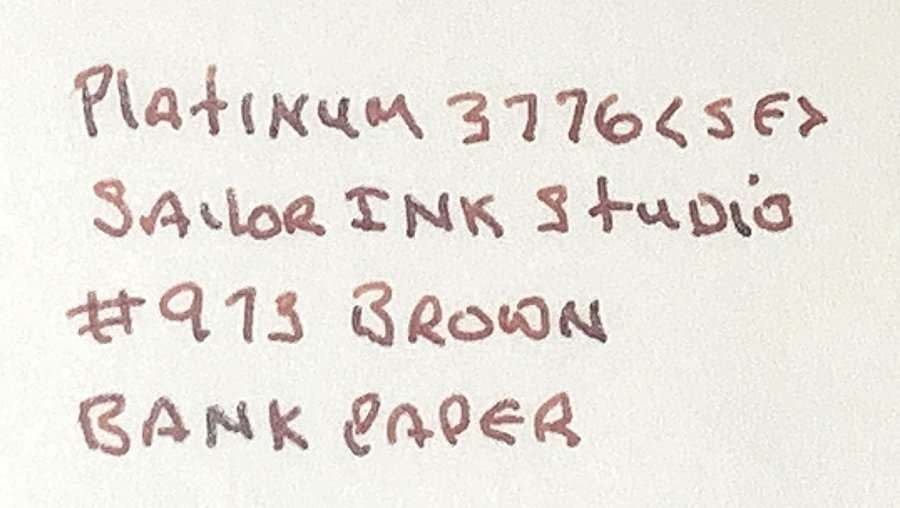 Platinum 3776 <SF>
Sailor Ink Studio
#973 Brown
Bank Paper